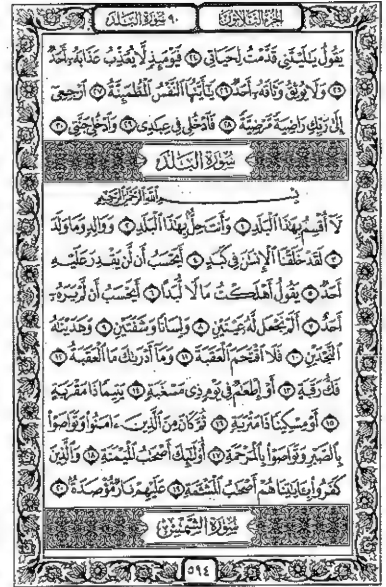 الجزء الثلاثون ٩٠ سورة البلد
يَقُولُ يَٰلَيْتَنِي قَدَّمْتُ لِحَيَاتِي ٢٤ فَيَوْمَئِذٍ لَّا يُعَذِّبُ عَذَابَهُۥٓ أَحَدٌ
٢٥ وَلَا يُوثِقُ وَثَاقَهُۥٓ أَحَدٌ ٢٦ يَٰٓأَيَّتُهَا ٱلنَّفْسُ ٱلْمُطْمَئِنَّةُ ٢٧ ٱرْجِعِىٓ
إِلَىٰ رَبِّكِ رَاضِيَةً مَّرْضِيَّةً ٢٨ فَٱدْخُلِى فِى عِبَٰدِى ٢٩ وَٱدْخُلِى جَنَّتِى ٣٠
سورة البلد
بسم الله الرحمن الرحيم
لَآ أُقْسِمُ بِهَٰذَا ٱلْبَلَدِ ١ وَأَنتَ حِلٌّۢ بِهَٰذَا ٱلْبَلَدِ ٢ وَوَالِدٍ وَمَا وَلَدَ
٣ لَقَدْ خَلَقْنَا ٱلْإِنسَٰنَ فِى كَبَدٍ ٤ أَيَحْسَبُ أَن لَّن يَقْدِرَ عَلَيْهِ
أَحَدٌ ٥ يَقُولُ أَهْلَكْتُ مَالًا لُّبَدًا ٦ أَيَحْسَبُ أَن لَّمْ يَرَهُۥٓ
أَحَدٌ ٧ أَلَمْ نَجْعَل لَّهُۥ عَيْنَيْنِ ٨ وَلِسَانًا وَشَفَتَيْنِ ٩ وَهَدَيْنَٰهُ
ٱلنَّجْدَيْنِ ١٠ فَلَا ٱقْتَحَمَ ٱلْعَقَبَةَ ١١ وَمَآ أَدْرَىٰكَ مَا ٱلْعَقَبَةُ ١٢
فَكُّ رَقَبَةٍ ١٣ أَوْ إِطْعَٰمٌ فِى يَوْمٍ ذِى مَسْغَبَةٍ ١٤ يَتِيمًا ذَا مَقْرَبَةٍ
١٥ أَوْ مِسْكِينًا ذَا مَتْرَبَةٍ ١٦ ثُمَّ كَانَ مِنَ ٱلَّذِينَ ءَامَنُوا۟ وَتَوَاصَوْا۟
بِٱلصَّبْرِ وَتَوَاصَوْا۟ بِٱلْمَرْحَمَةِ ١٧ أُو۟لَٰٓئِكَ أَصْحَٰبُ ٱلْمَيْمَنَةِ ١٨ وَٱلَّذِينَ
كَفَرُوا۟ بِـَٔايَٰتِنَا هُمْ أَصْحَٰبُ ٱلْمَشْـَٔمَةِ ١٩ عَلَيْهِمْ نَارٌ مُّؤْصَدَةٌۢ ٢٠
سورة الشمس
٥٩٤